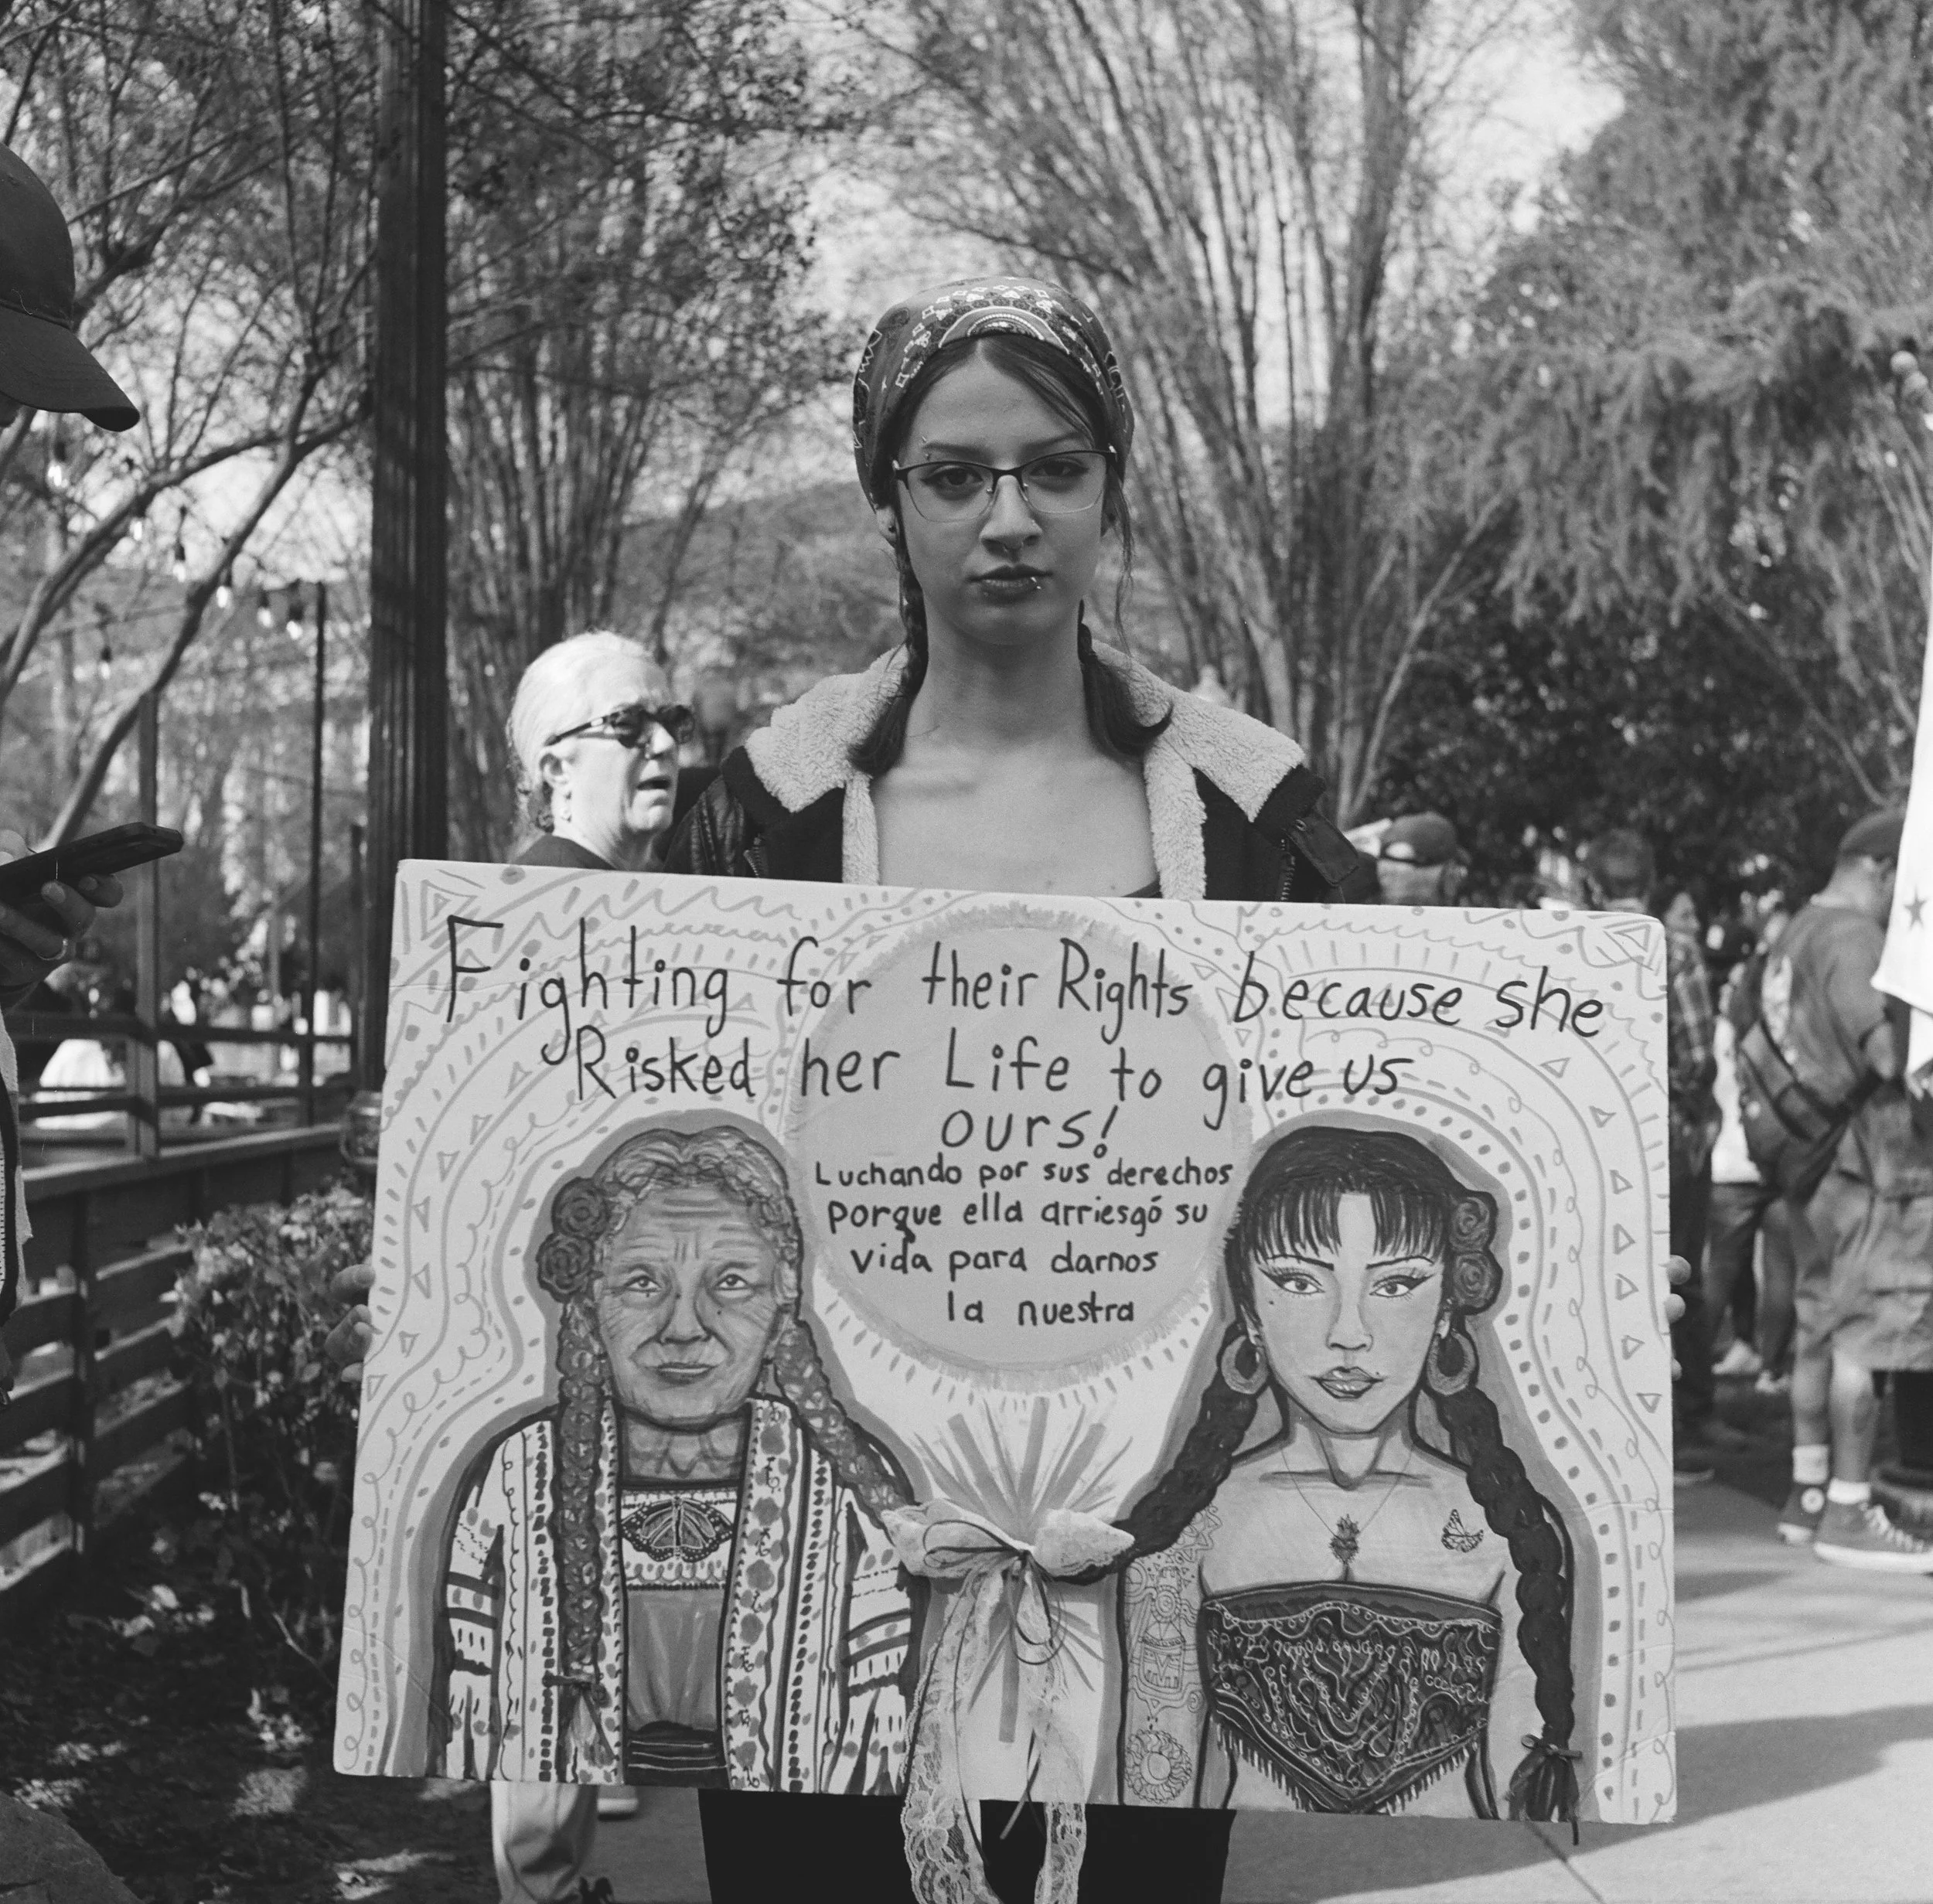 Fighting for their Rights because she
Risked her Life to give us
ours!
Luchando por sus derechos
porque ella arriesgó su
vida para darnos
la nuestra